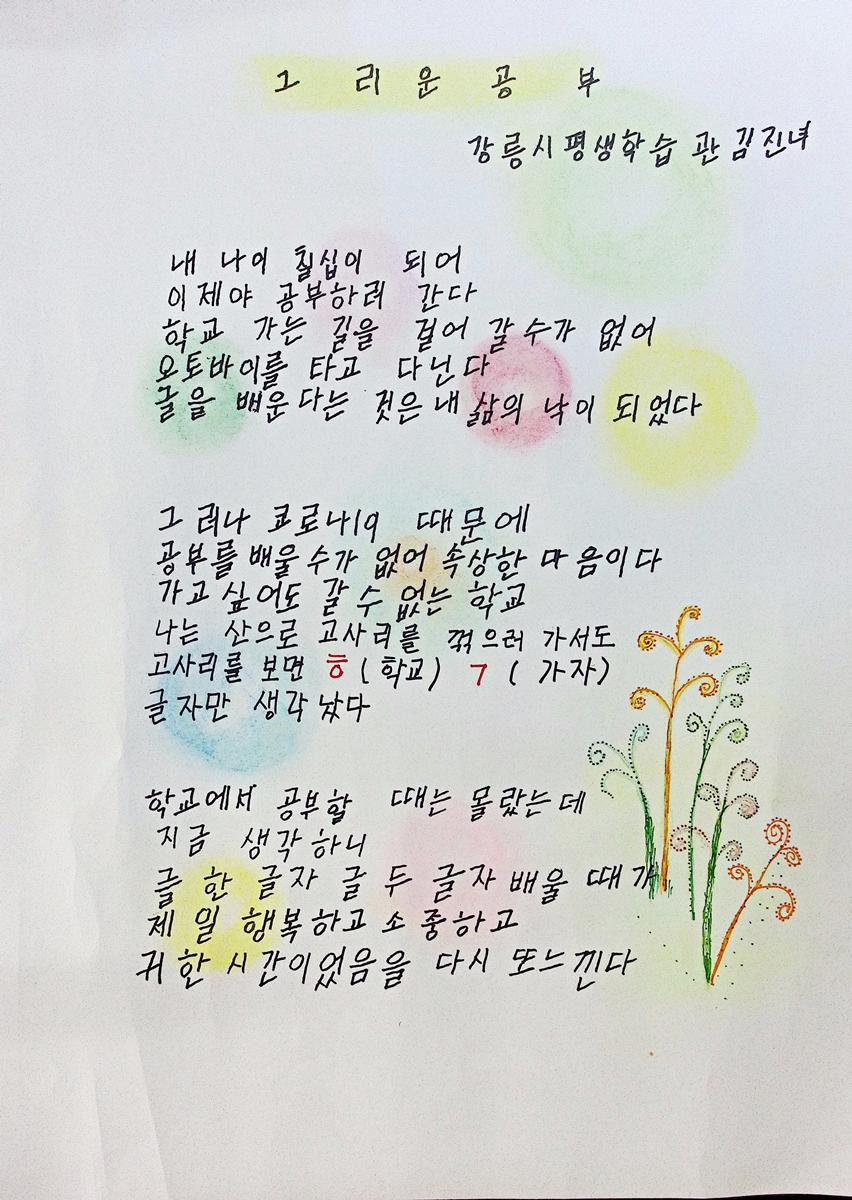 그리운 공부
강릉시평생학습관 김진녀
내 나이 칠십이 되어
이제야 공부하러 간다
학교 가는 길을 걸어 갈 수가 없어
오토바이를 타고 다닌다
글을 배운다는 것은 내 삶의 낙이 되었다
그러나 코로나19 때문에
공부를 배울 수가 없어 속상한 마음이다
가고 싶어도 갈 수 없는 학교
나는 산으로 고사리를 꺾으러 가서도
고사리를 보면 ㅎ(학교) ㄱ( 가자)
글자만 생각 났다
학교에서 공부할 때는 몰랐는데
지금 생각하니
글 한 글자 글 두 글자 배울 때가
제일 행복하고 소중하고
귀한 시간이었음을 다시 또 느낀다